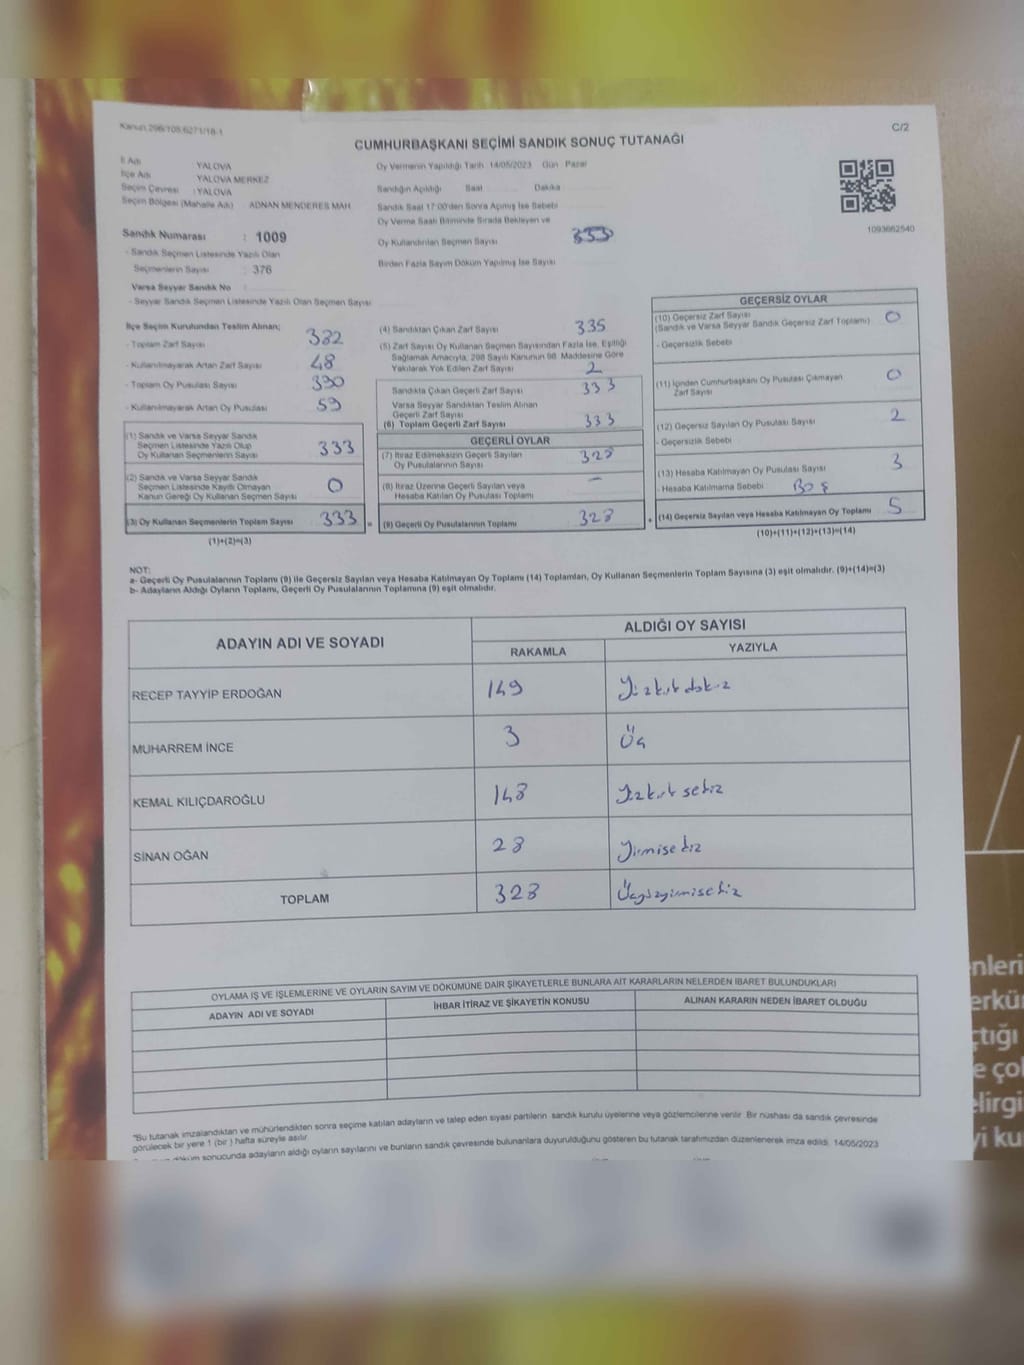 Kanun 298/105,6271/18-1
C/2
CUMHURBAŞKANI SEÇİMİ SANDIK SONUÇ TUTANAĞI
İl Adı YALOVA
İlçe Adı YALOVA MERKEZ
Seçim Çevresi : YALOVA
Seçim Bölgesi (Mahalle Adı) ADNAN MENDERES MAH.
Sandık Numarası : 1009
- Sandık Seçmen Listesinde Yazılı Olan
Seçmenlerin Sayısı : 376
Varsa Seyyar Sandık No
- Seyyar Sandık Seçmen Listesinde Yazılı Olan Seçmen Sayısı
Oy Vermenin Yapıldığı Tarih 14/05/2023 Gün Pazar
Sandığın Açıldığı Saat Dakika
Sandık Saat 17:00'den Sonra Açılmış İse Sebebi
Oy Verme Saati Bitiminde Sırada Bekleyen ve
Oy Kullandırılan Seçmen Sayısı 333
Birden Fazla Sayım Döküm Yapılmış İse Sayısı
1093662540
İlçe Seçim Kurulundan Teslim Alınan;
- Toplam Zarf Sayısı 382
- Kullanılmayarak Artan Zarf Sayısı 48
- Toplam Oy Pusulası Sayısı 390
- Kullanılmayarak Artan Oy Pusulası 59
(1) Sandık ve Varsa Seyyar Sandık
Seçmen Listesinde Yazılı Olup
Oy Kullanan Seçmenlerin Sayısı 333
(2) Sandık ve Varsa Seyyar Sandık
Seçmen Listesinde Kayıtlı Olmayan
Kanun Gereği Oy Kullanan Seçmen Sayısı 0
(3) Oy Kullanan Seçmenlerin Toplam Sayısı 333 =
(1)+(2)=(3)
(4) Sandıktan Çıkan Zarf Sayısı 335
(5) Zarf Sayısı Oy Kullanan Seçmen Sayısından Fazla İse, Eşitliği
Sağlamak Amacıyla, 298 Sayılı Kanunun 98. Maddesine Göre
Yakılarak Yok Edilen Zarf Sayısı 2
Sandıkta Çıkan Geçerli Zarf Sayısı 333
Varsa Seyyar Sandıktan Teslim Alınan
Geçerli Zarf Sayısı
(6) Toplam Geçerli Zarf Sayısı 333
GEÇERLİ OYLAR
(7) İtiraz Edilmeksizin Geçerli Sayılan
Oy Pusulalarının Sayısı 328
(8) İtiraz Üzerine Geçerli Sayılan veya
Hesaba Katılan Oy Pusulası Toplamı –
(9) Geçerli Oy Pusulalarının Toplamı 328 +
GEÇERSİZ OYLAR
(10) Geçersiz Zarf Sayısı
(Sandık ve Varsa Seyyar Sandık Geçersiz Zarf Toplamı) 0
- Geçersizlik Sebebi
(11) İçinden Cumhurbaşkanı Oy Pusulası Çıkmayan
Zarf Sayısı 0
(12) Geçersiz Sayılan Oy Pusulası Sayısı 2
- Geçersizlik Sebebi
(13) Hesaba Katılmayan Oy Pusulası Sayısı 3
- Hesaba Katılmama Sebebi Boş
(14) Geçersiz Sayılan veya Hesaba Katılmayan Oy Toplamı 5
(10)+(11)+(12)+(13)=(14)
NOT:
a- Geçerli Oy Pusulalarının Toplamı (9) ile Geçersiz Sayılan veya Hesaba Katılmayan Oy Toplamı (14) Toplamları, Oy Kullanan Seçmenlerin Toplam Sayısına (3) eşit olmalıdır. (9)+(14)=(3)
b- Adayların Aldığı Oyların Toplamı, Geçerli Oy Pusulalarının Toplamına (9) eşit olmalıdır.
ADAYIN ADI VE SOYADI
ALDIĞI OY SAYISI
RAKAMLA YAZIYLA
RECEP TAYYİP ERDOĞAN 149 Yüzkırkdokuz
MUHARREM İNCE 3 Üç
KEMAL KILIÇDAROĞLU 148 Yüzkırk sekiz
SİNAN OĞAN 28 Yirmisekiz
TOPLAM 328 Üçyüzyirmisekiz
OYLAMA İŞ VE İŞLEMLERİNE VE OYLARIN SAYIM VE DÖKÜMÜNE DAİR ŞİKAYETLERLE BUNLARA AİT KARARLARIN NELERDEN İBARET BULUNDUKLARI
ADAYIN ADI VE SOYADI İHBAR İTİRAZ VE ŞİKAYETİN KONUSU ALINAN KARARIN NEDEN İBARET OLDUĞU
"Bu tutanak imzalandıktan ve mühürlendikten sonra seçime katılan adayların ve talep eden siyasi partilerin sandık kurulu üyelerine veya gözlemcilerine verilir. Bir nüshası da sandık çevresinde
görülecek bir yere 1 (bir) hafta süreyle asılır.
döküm sonucunda adayların aldığı oyların sayılarını ve bunların sandık çevresinde bulunanlara duyurulduğunu gösteren bu tutanak tarafımızdan düzenlenerek imza edildi. 14/05/2023
nleri
erkür
çtığı
e çol
elirgi
yi ku